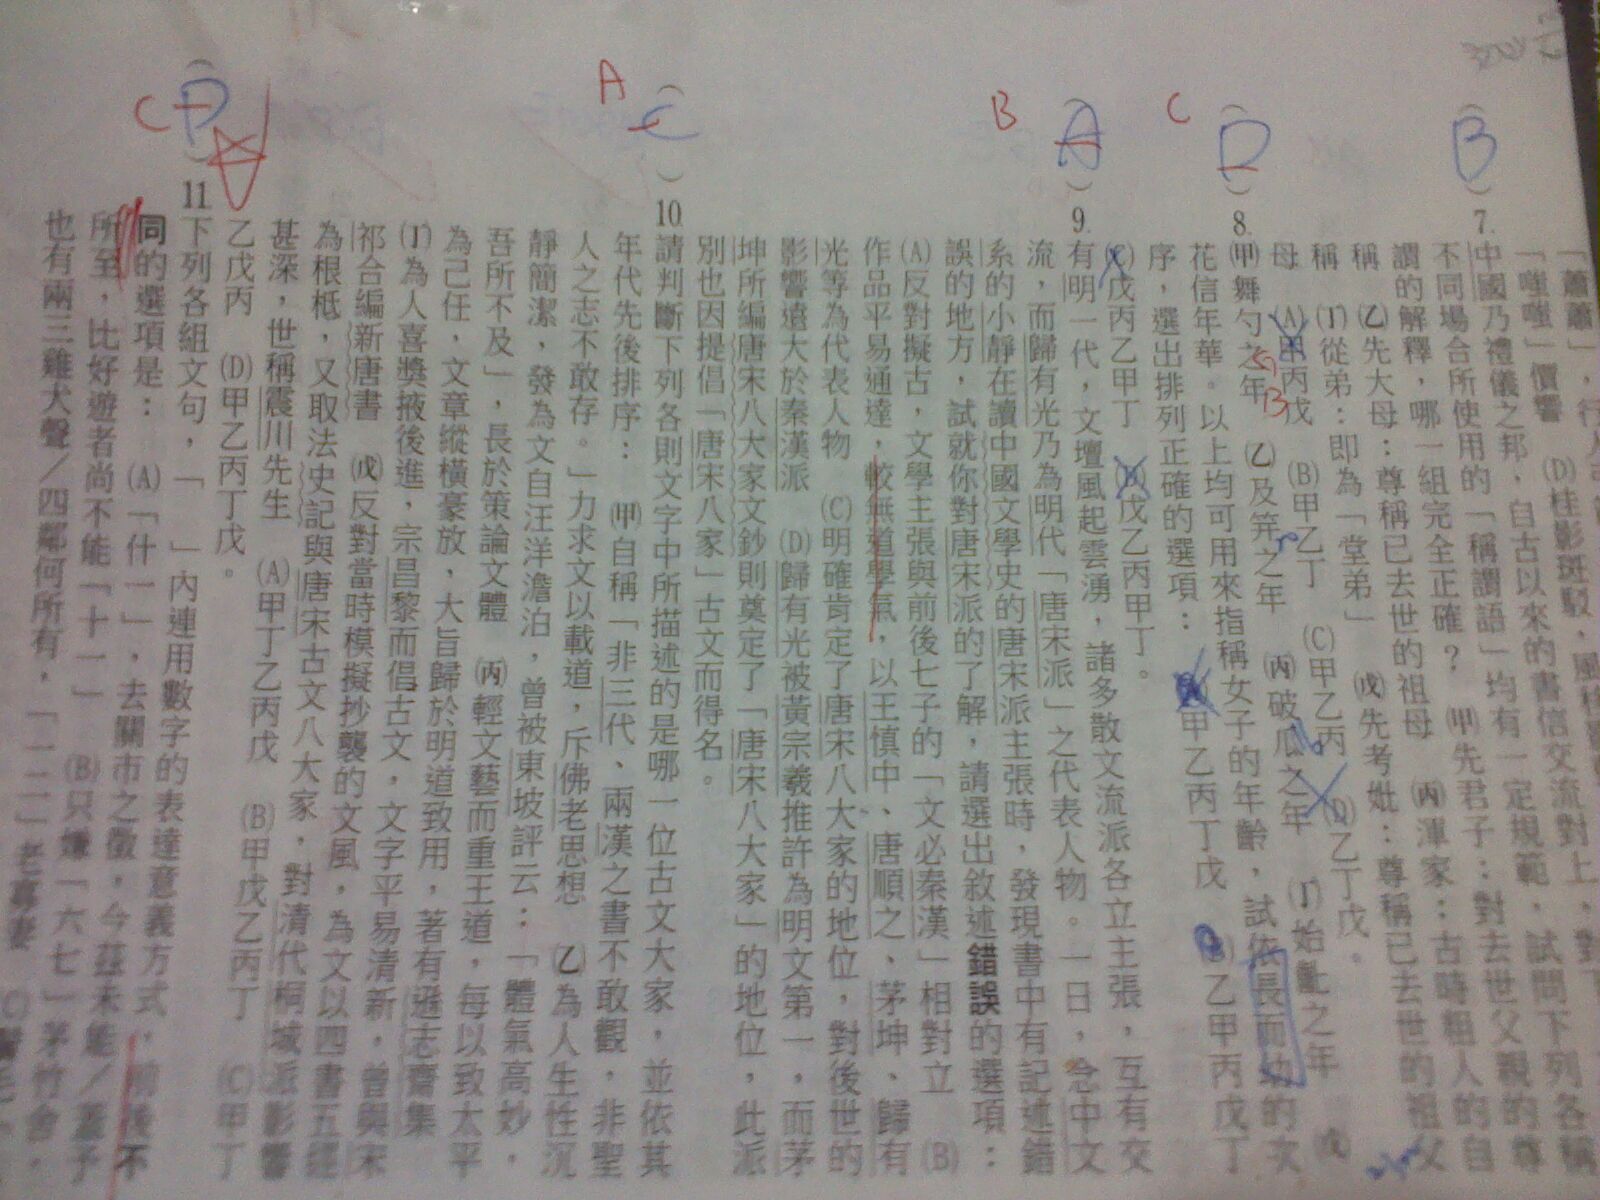 「蕭蕭」，行人
「嗤嗤」價響　(D)桂影斑駁，風移影
7.中國乃禮儀之邦，自古以來的書信交流對上，對下，
不同場合所使用的「稱謂語」均有一定規範，試問下列各稱
謂的解釋，哪一組完全正確？　(甲)先君子：對去世父親的尊
稱　(乙)先大母：尊稱已去世的祖母　(丙)渾家：古時粗人的自
稱　(丁)從弟：即為「堂弟」　(戊)先考妣：尊稱已去世的祖父
母　(A)甲丙戊　(B)甲乙丁　(C)甲乙丙　(D)乙丁戊。
8.(甲)舞勺之年　(乙)及笄之年　(丙)破瓜之年　(丁)始齔之年　(戊)
花信年華。以上均可用來指稱女子的年齡，試依長而幼的次
序，選出排列正確的選項：　甲乙丙丁戊　(B)乙甲丙戊丁
(C)戊丙乙甲丁　(D)戊乙丙甲丁。
9.有明一代，文壇風起雲湧，諸多散文流派各立主張，互有交
流，而歸有光乃為明代「唐宋派」之代表人物。一日，念中文
系的小靜在讀中國文學史的唐宋派主張時，發現書中有記述錯
誤的地方，試就你對唐宋派的了解，請選出敘述錯誤的選項：
(A)反對擬古，文學主張與前後七子的「文必秦漢」相對立　(B)
作品平易通達，較無道學氣，以王慎中、唐順之、茅坤、歸有
光等為代表人物　(C)明確肯定了唐宋八大家的地位，對後世的
影響遠大於秦漢派　(D)歸有光被黃宗羲推許為明文第一，而茅
坤所編唐宋八大家文鈔則奠定了「唐宋八大家」的地位，此派
別也因提倡「唐宋八家」古文而得名。
10.請判斷下列各則文字中所描述的是哪一位古文大家，並依其
年代先後排序：　(甲)自稱「非三代、兩漢之書不敢觀，非聖
人之志不敢存。」力求文以載道，斥佛老思想　(乙)為人生性沉
靜簡潔，發為文自汪洋澹泊，曾被東坡評云：「體氣高妙，
吾所不及」，長於策論文體　(丙)輕文藝而重王道，每以致太平
為己任，文章縱橫豪放，大旨歸於明道致用，著有遜志齋集
(丁)為人喜獎掖後進，宗昌黎而倡古文，文字平易清新，曾與宋
祁合編新唐書　(戊)反對當時模擬抄襲的文風，為文以四書五經
為根柢，又取法史記與唐宋古文八大家，對清代桐城派影響
甚深，世稱震川先生　(A)甲丁乙丙戊　(B)甲戊乙丙丁　(C)甲丁
乙戊丙　(D)甲乙丙丁戊。
11.下列各組文句，「　」內連用數字的表達意義方式，前後不
同的選項是：　(A)「什一」，去關市之徵，今茲未能／蓋予
所至，比好遊者尚不能「十一」　(B)只嫌「六七」茅竹舍，
也有兩三雞犬聲／四鄰何所有，「一二」老寡妻
B
D
C
A
B
C
A
D
C
B